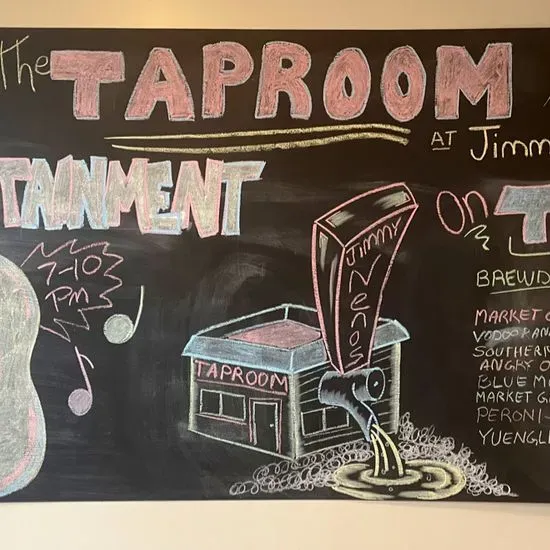 the TAPROOM
AT Jimm
TAINMENT
7-10
PM
ON T
JIMMY
Nenos
TAPROOM
BREWD
MARKET
VOODOO
SOUTHERN
ANGRY O
BLUE M
MARKET G
PERONI-
YUENGL